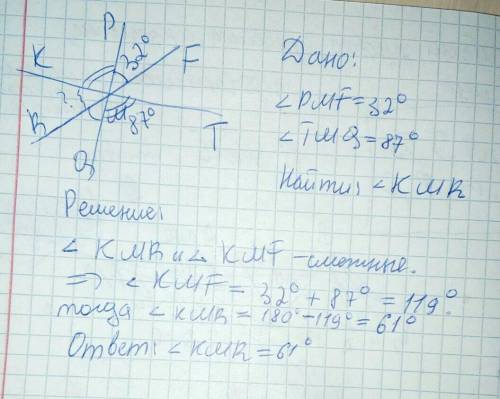 P
K
32°
F
?
M
87°
R
T
Q
Дано:
∠PMF=32°
∠TMQ=87°
Найти: ∠KMR
Решение:
∠ KMR и ∠ KMF - смежные.
=> ∠ KMF = 32° + 87° = 119°.
тогда ∠ KMR = 180° - 119° = 61°
Ответ: ∠ KMR = 61°